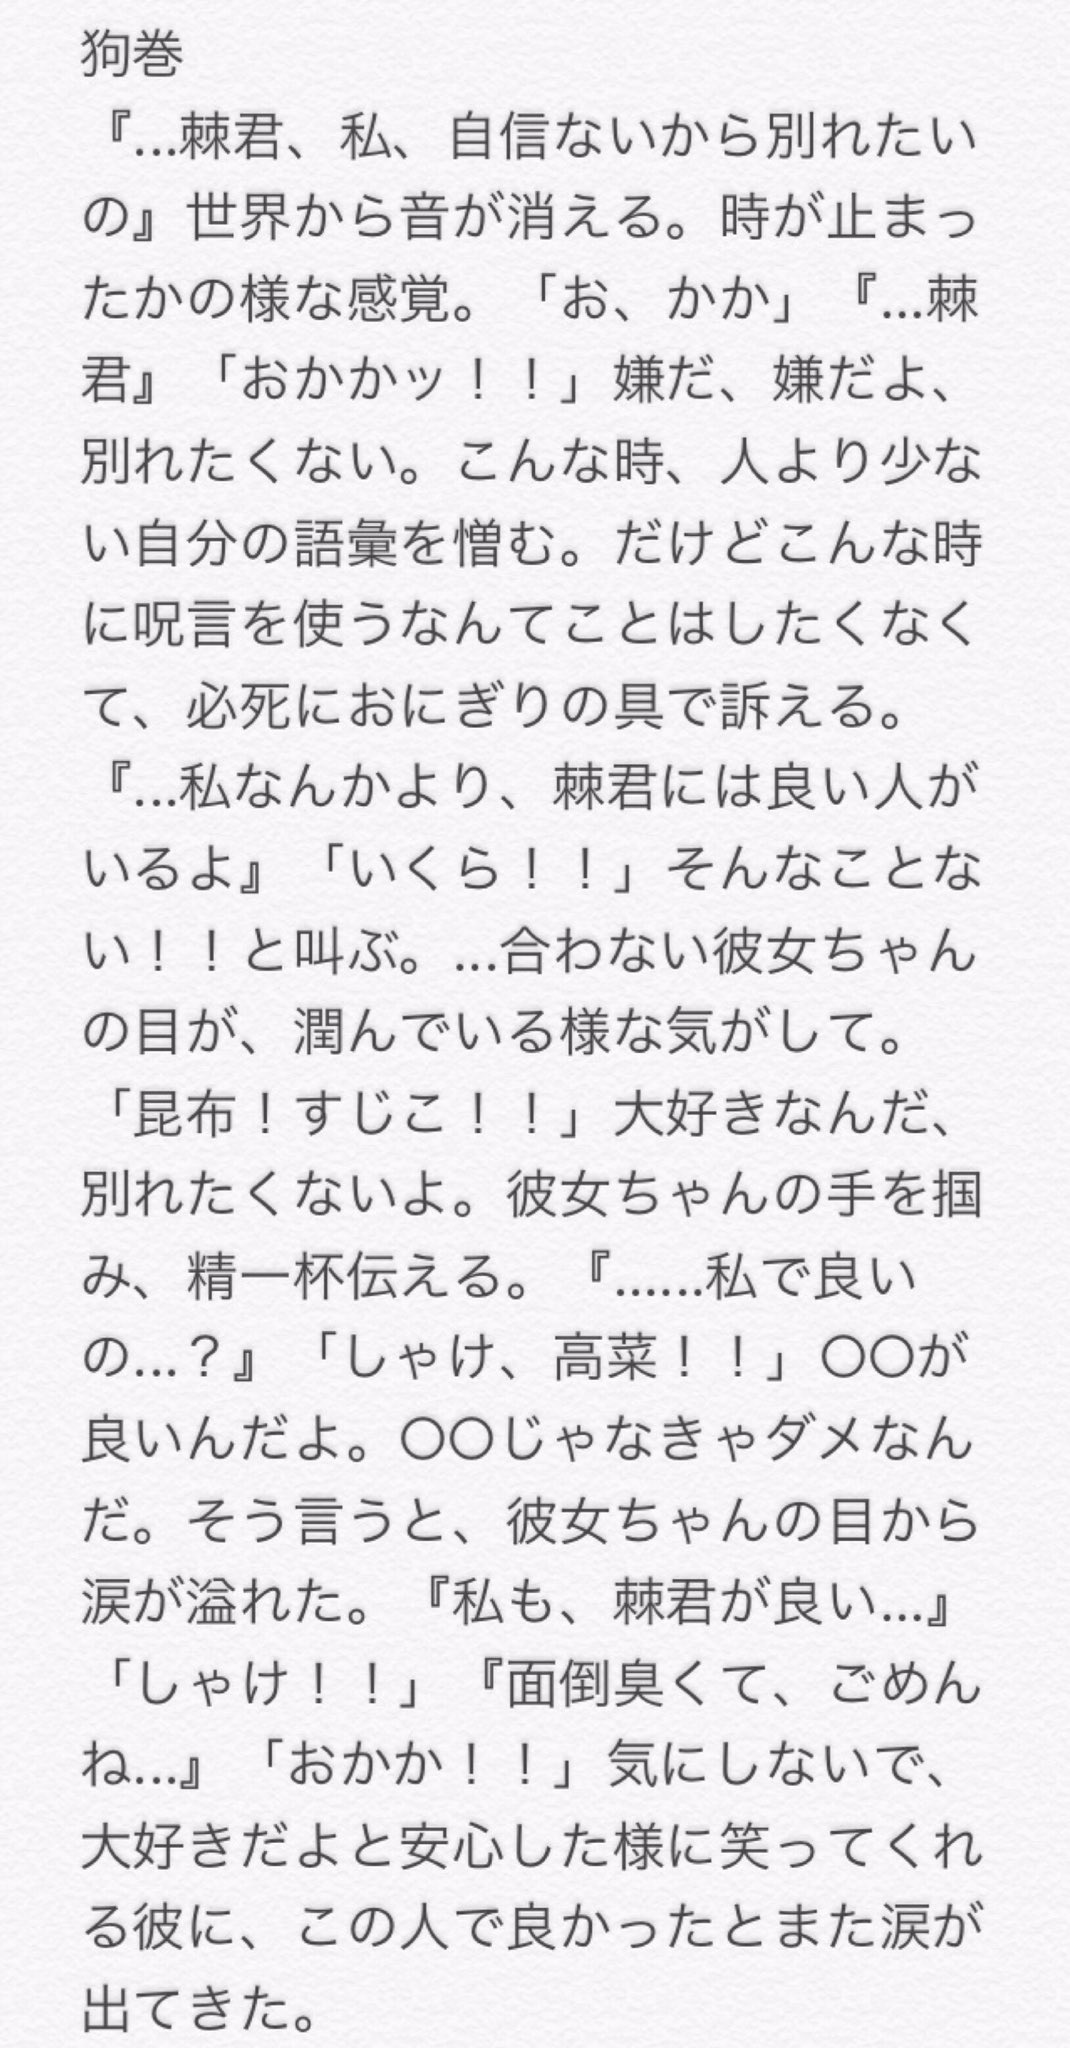 狗巻
『…棘君、私、自信ないから別れたい
の』世界から音が消える。時が止まっ
たかの様な感覚。「お、かか」『…棘
君』「おかかッ！！」嫌だ、嫌だよ、
別れたくない。こんな時、人より少な
い自分の語彙を憎む。だけどこんな時
に呪言を使うなんてことはしたくなく
て、必死におにぎりの具で訴える。
『…私なんかより、棘君には良い人が
いるよ』「いくら！！」そんなことな
い！！と叫ぶ。…合わない彼女ちゃん
の目が、潤んでいる様な気がして。
「昆布！すじこ！！」大好きなんだ、
別れたくないよ。彼女ちゃんの手を掴
み、精一杯伝える。『……私で良い
の…？』「しゃけ、高菜！！」〇〇が
良いんだよ。〇〇じゃなきゃダメなん
だ。そう言うと、彼女ちゃんの目から
涙が溢れた。『私も、棘君が良い…』
「しゃけ！！」『面倒臭くて、ごめん
ね…』「おかか！！」気にしないで、
大好きだよと安心した様に笑ってくれ
る彼に、この人で良かったとまた涙が
出てきた。